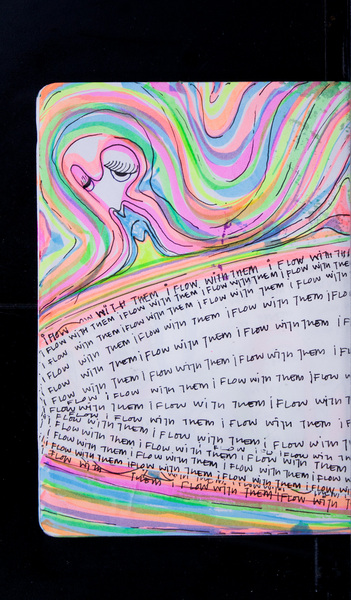 i FLOW WITH THEM i FLOW WITH THEM i FLOW WITH THEM
i FLOW WITH THEM i FLOW WITH THEM i FLOW WITH THEM i FLOW WITH THE
FLOW WITH THEM i FLOW WITH THEM i FLOW WITH THEM i FLOW WITH THEM
i FLOW WITH THEM i FLOW WITH THEM i FLOW WITH THEM i FLO
i FLOW WITH THEM i FLOW WITH THEM i FLOW WITH THEM i F
i FLOW WITH THEM i FLOW WITH THEM i FLOW WITH THEM i FLOW
FLOW WITH THEM i FLOW WITH THEM i FLOW WITH THEM i FLOW W
i FLOW WITH THEM i FLOW WITH THEM i FLOW WITH THEM i FLOW WITH T
i FLOW WITH THEM i FLOW WITH THEM i FLOW WITH THEM
FLOW WITH THEM i FLOW WITH THEM i FLOW WITH THEM i FLOW WITH
FLOW WITH THEM i FLOW WITH THEM i FLOW WITH THEM i FLOW WITH THEM
FLOW WITH THEM i FLOW WITH THEM i FLOW WITH THEM i FLOW WITH
FLOW WITH THEM i FLOW WITH THEM i FLOW WITH THEM
i FLOW WITH THEM i FLOW WITH THEM